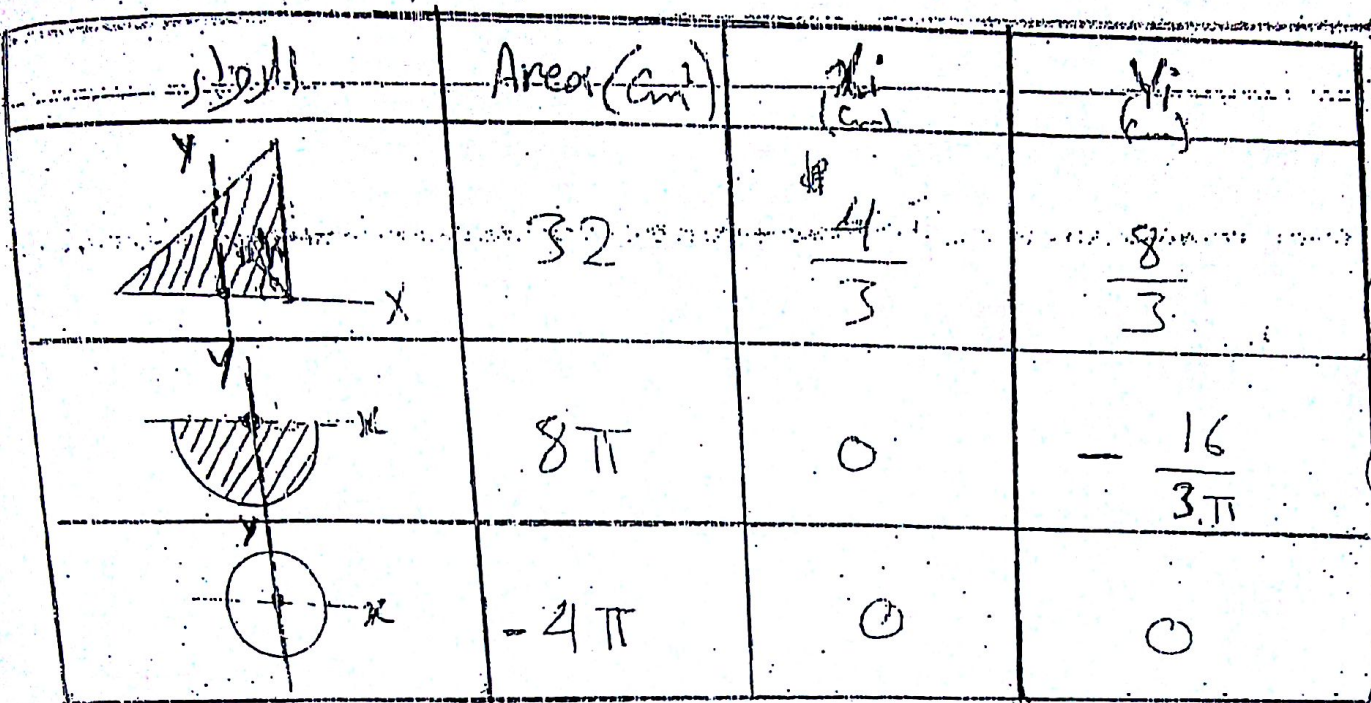 Area (cm²) xi (cm) Yi (cm)
Y
X
32 4/3 8/3
Y
x
8π 0 - 16/3π
Y
x
-4π 0 0